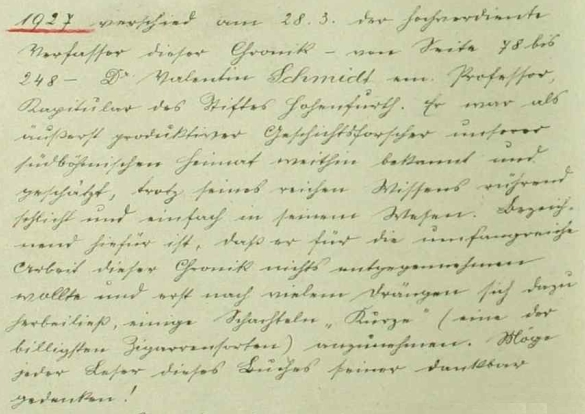 1927 verschied am 28.3. der hochverdiente
Verfasser dieser Chronik – von Seite 78 bis
248 – Dr Valentin Schmidt em. Professor,
Kapitular des Stiftes Hohenfurth. Er war als
äußerst produktiver Geschichtsforscher unserer
südböhmischen Heimat weithin bekannt und
geschätzt, trotz seines reichen Wissens rührend
schlicht und einfach in seinem Wesen. Bezeich-
nend hiefür ist, daß er für die umfangreiche
Arbeit dieser Chronik nichts entgegennehmen
wollte und erst nach vielem Drängen sich dazu
herbeiließ, einige Schachteln „Kurze" (eine der
billigsten Zigarrensorten) anzunehmen. Möge
jeder Leser dieses Buches seiner dankbar
gedenken!